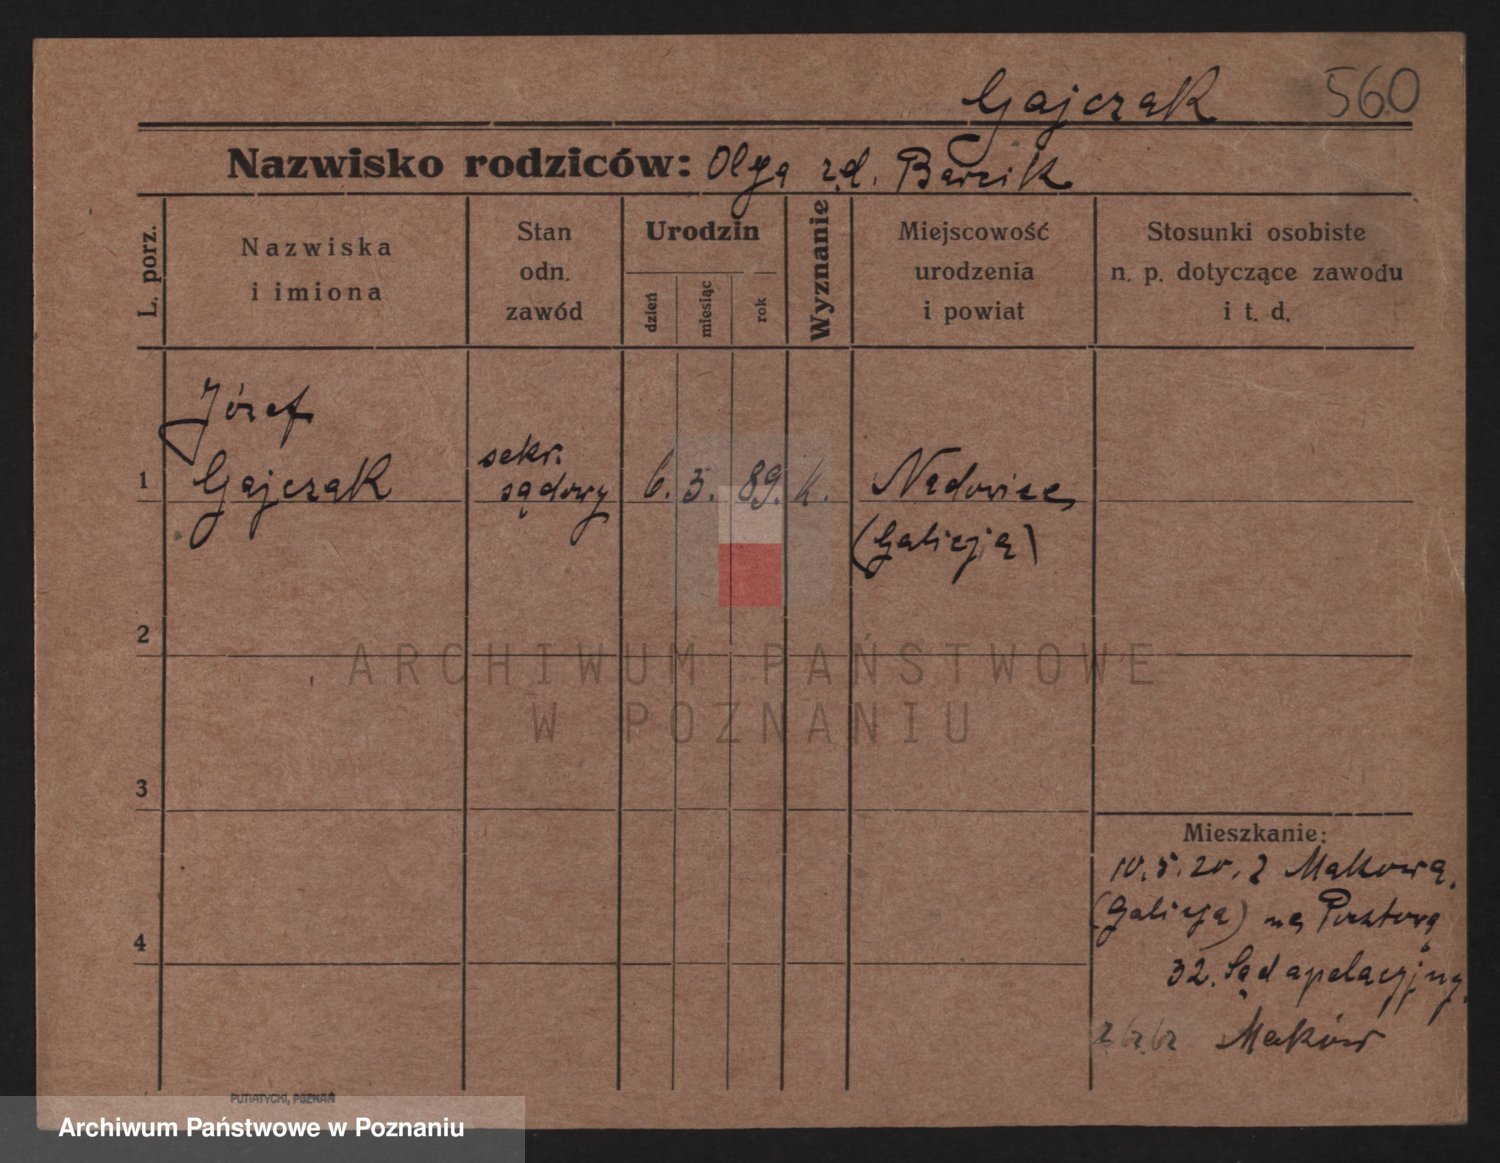 Gajczak 560
Nazwisko rodziców: Olga zd. Barcik
L. porz.
Nazwiska
i imiona
Stan
odn.
zawód
Urodzin
dzień
miesiąc
rok
Wyznanie
Miejscowość
urodzenia
i powiat
Stosunki osobiste
n. p. dotyczące zawodu
i t. d.
1
Józef
Gajczak
sekr.
sądowy
6. 3. 89. k.
(Galicja)
ARCHIWUM PAŃSTWOWE
W POZNANIU
2
3
4
Mieszkanie:
10.5.20. z Makowa
(Galicja) na Pocztową
32. Sąd apelacyjny.
Maków
PUTIATYCKI, POZNAŃ
Archiwum Państwowe w Poznaniu